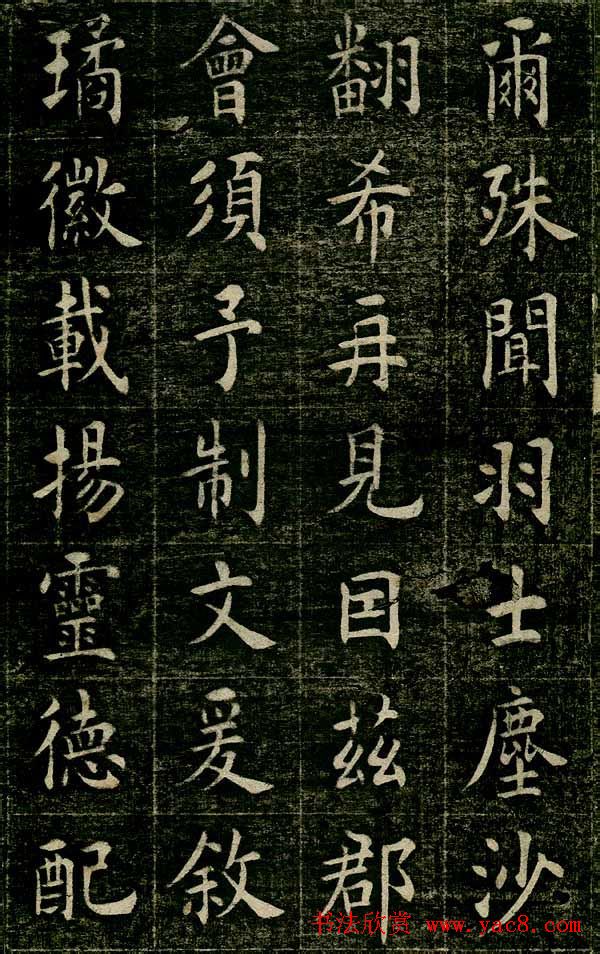 爾殊聞羽士塵沙
翻希再見囙茲郡
會須予制文爰敘
璚徽載揚靈德配
书法欣赏 www.yac8.com